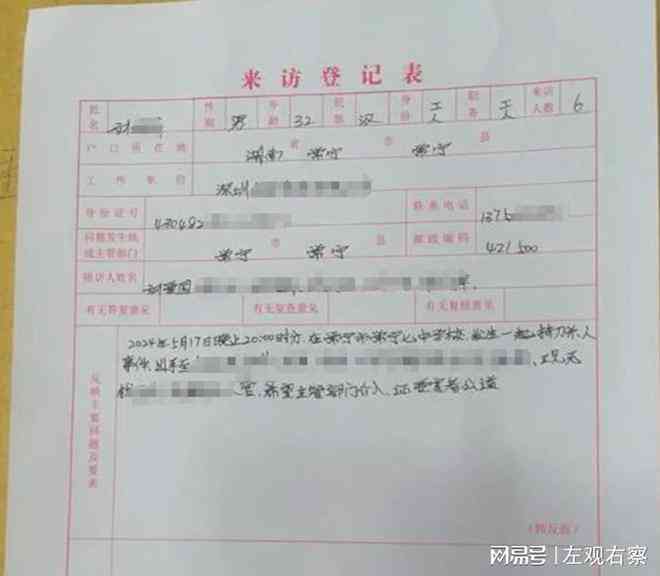 来访登记表
姓名 刘 性别 男 年龄 32 民族 汉 身份 工人 职务 工人 来访人数 6
户口所在地 湖南 省 常宁 市 常宁 县
工作单位 深圳
身份证号 430482 联系电话 1375
问题发生地或主管部门 常宁 市 常宁 县 邮政编码 421500
陪访人姓名
有无答复意见 有无复查意见 有无复核意见
反映主要问题及要求
2024年5月17日晚上20:00时分.在常宁市常宁七中学校发生一起持刀杀人
事件.
希望主管部门介入. 还受害者公道
网易号 | 左观右察